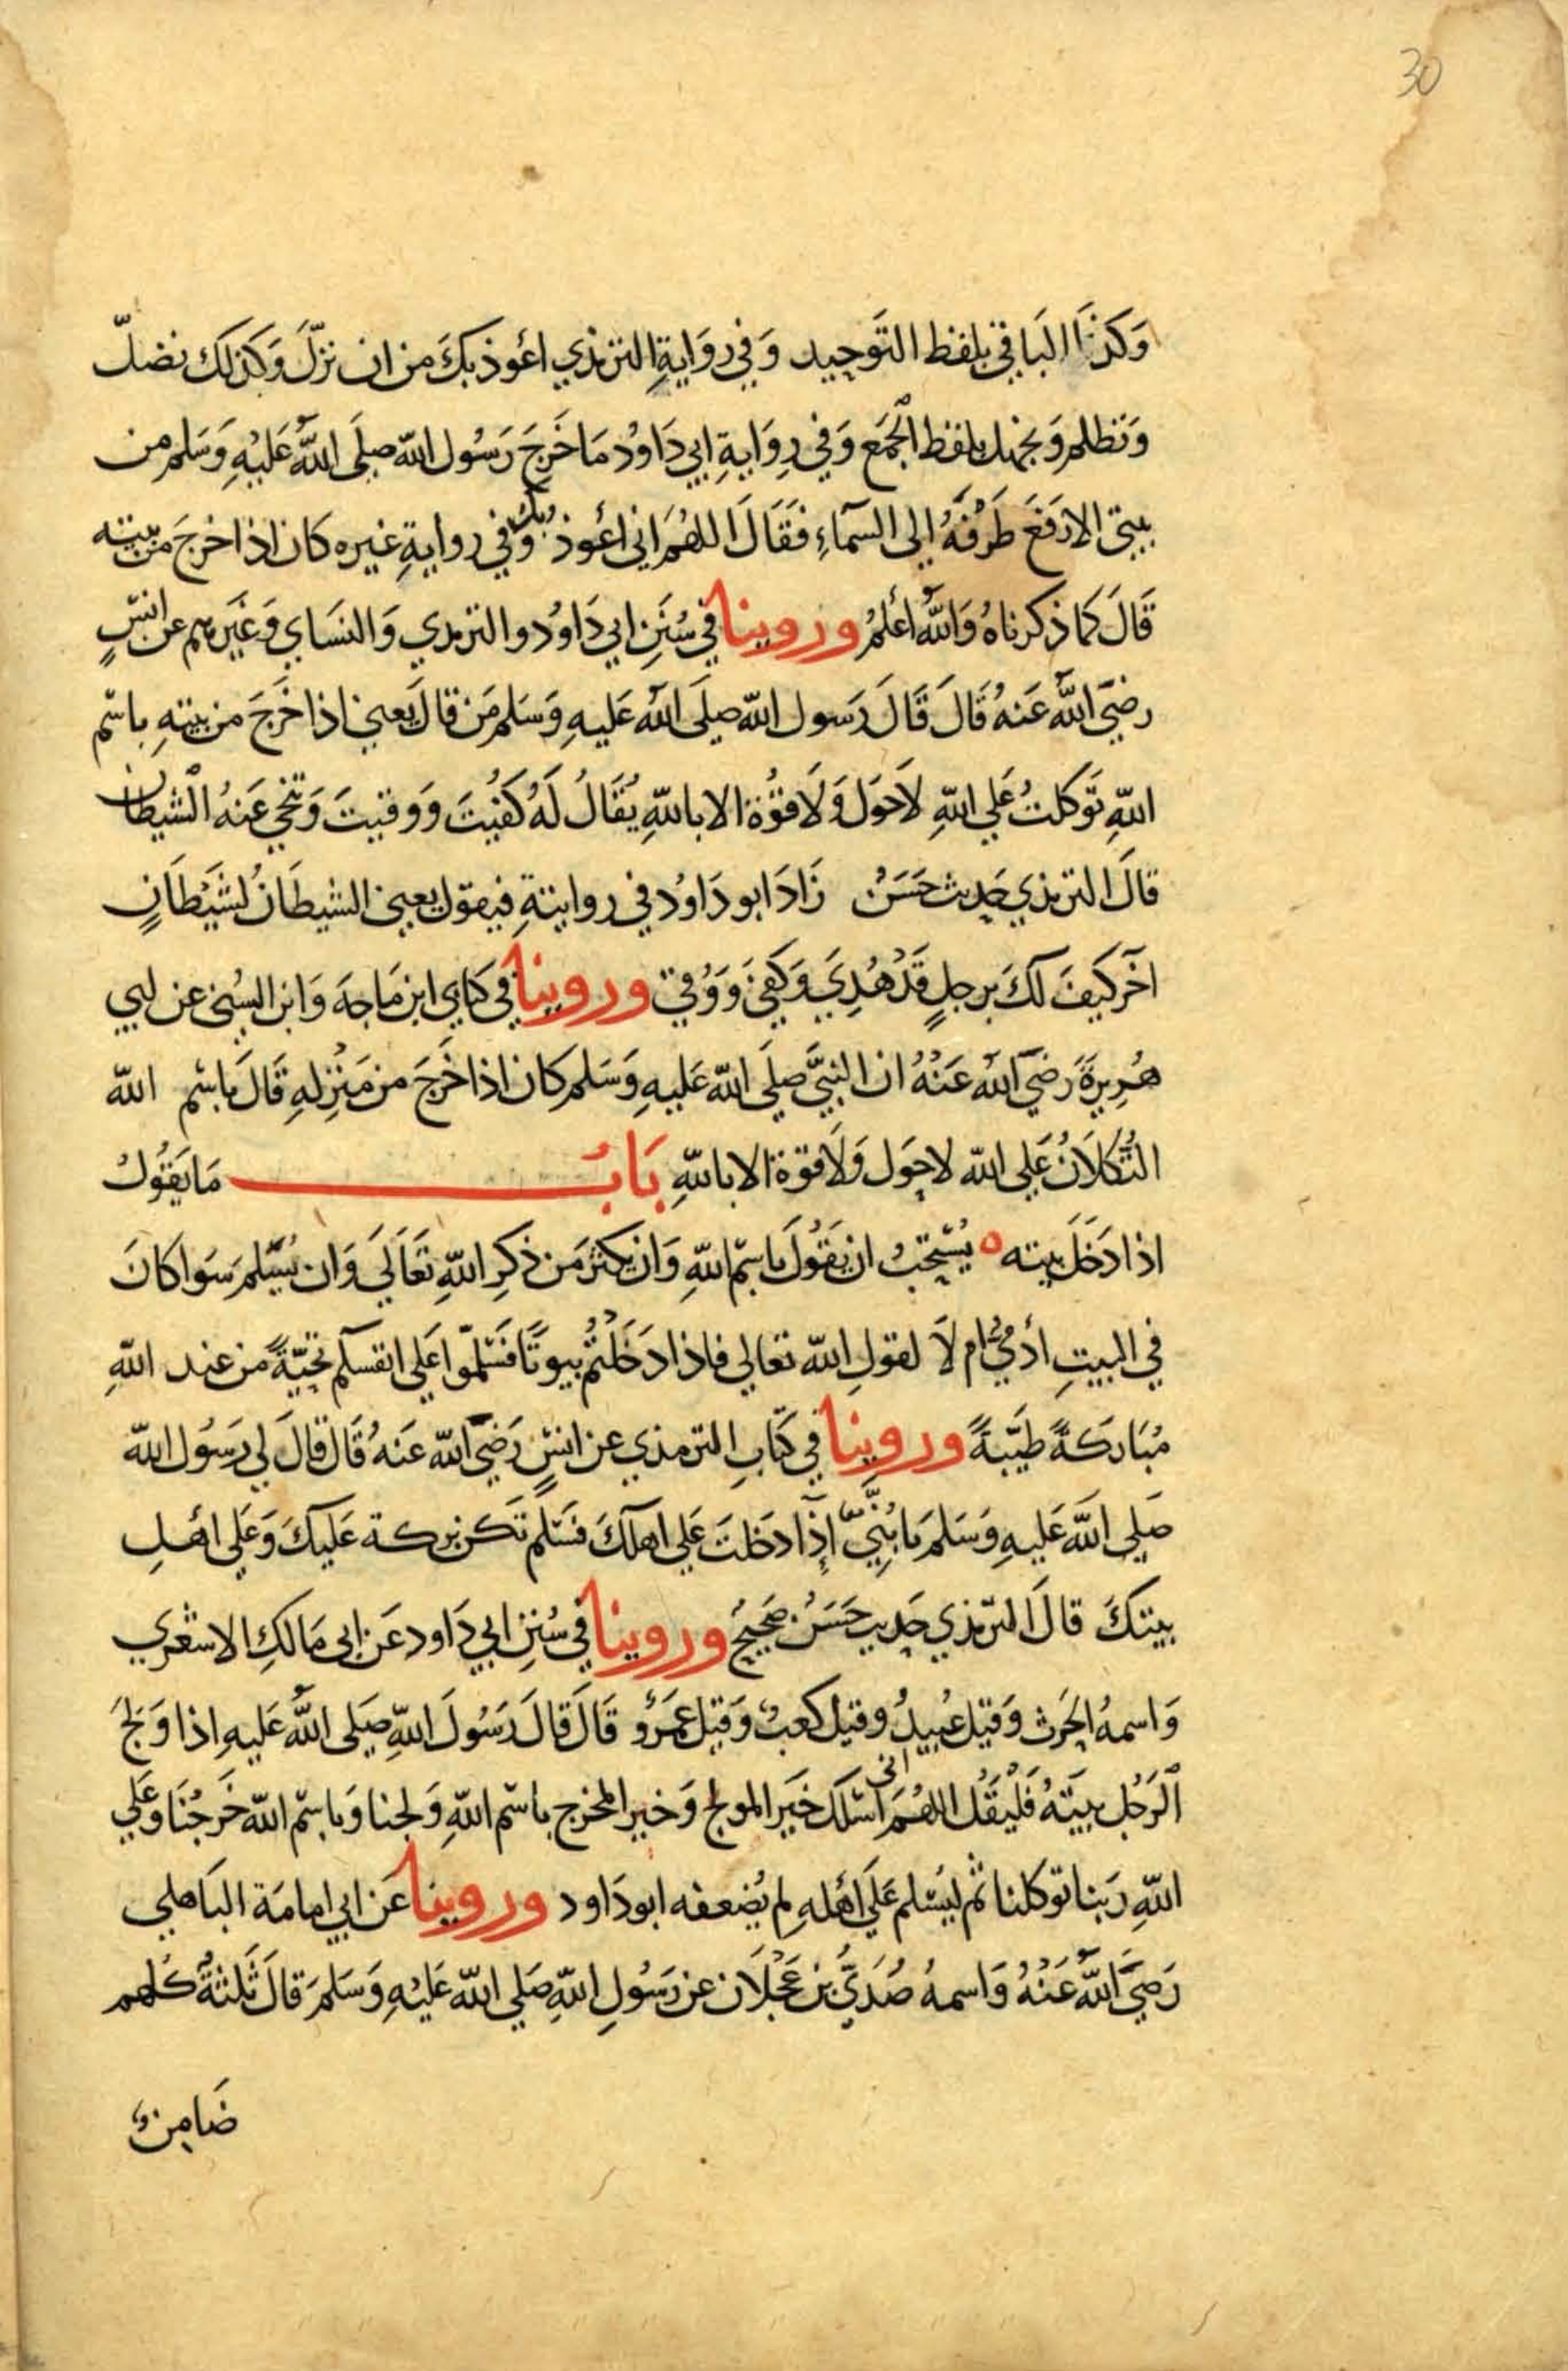 30
وَكذَا البَاقي بلفظ التَوحِيد وَفي رِوَايةِ الترمذي اعُوذ بكَ من ان نزلّ وَكذلك نضلّ
وَنظلم وَنجهل بلفظ الجَمَع وَفي رِوَايةِ ابي دَاوُد مَا خَرجَ رَسُول اللّه صلَى اللّهُ عَليْهِ وَسَلم من
بيتي الا رَفعَ طَرْفهُ الى السمآءِ فقَالَ اللهُم اني اعُوذ بك وَفي روايةِ غيره كان اذا خرجَ من بيته
قَالَ كما ذكرناهُ وَاللّهُ أعْلمُ وروينا في سُنَنِ ابي دَاوُد والترمذي وَالنسَاي وَغيَرهم عن انسٍ
رضيَ اللّهُ عَنهُ قَالَ قَالَ رَسول اللّه صلَى اللّه عَليهِ وَسَلم مَن قالَ يَعني اذا خَرَجَ من بيتهِ باسْم
اللّهِ تَوكلتُ عَلي اللّهِ لَا حَول وَلَا قوُة الا باللّهِ يُقَالُ لَهُ كفُيتَ وَوقيتَ وَتنحي عَنهُ الشيطان
قالَ الترمذي حَديث حَسَنٌ زَادَ ابو دَاوُد في روايتةِ فيقول يعني الشيطَانُ لشَيْطَانٍ
اخَر كَيفَ لَكَ برجلٍ قَدْ هُدِيَ وَكفيَ وَوُقيَ وروينا في كتابي ابن مَاجهَ وَابن السُني عن ابي
هُرِيرةَ رَضيَ اللّه عَنْهُ ان النبيَّ صلَى اللّه عَليهِ وَسَلم كان اذا خَرَجَ من مَنْزِلهِ قَالَ باسْم اللّه
التُكلَانُ عَلي اللّه لا حَول وَلَا قوة الا باللّهِ بَابُ مَا يَقوُلُ
اذا دَخَلَ بيته ٥ يُستَحبُ ان يَقوُلَ باسْم اللّهِ وَان يكثرَ من ذكرِ اللّهِ تعَالَي وَان يُسَلم سَوَا كانَ
في البيتِ أدَميُّ ام لَا لقولِ اللّه تعالي فاذا دَخَلْتمُ بيوتًا فسَلموُا عَلي انفسكم تحيّةً من عند اللّهِ
مُبَارَكةً طَيّبةً وروينا في كتَابِ الترمذي عن انسٍ رَضيَ اللّه عَنهُ قَالَ قَالَ لي رَسُول اللّه
صَلى اللّه عَليهِ وَسَلمَ يا بُنَّي إذا دَخَلتَ عَلي اهلكَ فسَلم تَكن بركة عَليكَ وَعَلي اهْلِ
بيتكَ قالَ الترمذي حَديث حَسَنٌ صَحيحٌ وروينا في سُننِ ابي دَاود عَن ابي مَالكِ الاشعْري
وَاسمهُ الحرث وَقيل عُبيدُ وقيل كعبٌ وَقيل عمَرو قَالَ قَالَ رَسُولَ اللّهِ صَلى اللّهُ عَليهِ اذا وَلَجَ
الرَجُل بيَتهُ فلْيقُل اللهُمَ انى اسْئلكَ خَيَر المولج وَخيرَ المخرج باسْم اللّهِ وَلجنا وَباسِم اللّه خَرجْنَا وَعَلي
اللّهِ رَبنا توكلنا ثم ليُسَلم عَلَي اهْلهِ لم يُضعفه ابو دَاود وروينا عَن ابي امامَة البَاهلي
رَضيَ اللّهُ عَنْهُ وَاسمهُ صُدَيُّ بن عَجْلَان عن رَسُولِ اللّهِ صَلي اللّه عَليْهِ وَسَلمَ قالَ ثَلثةٌ كلهم
ضَامنٌ